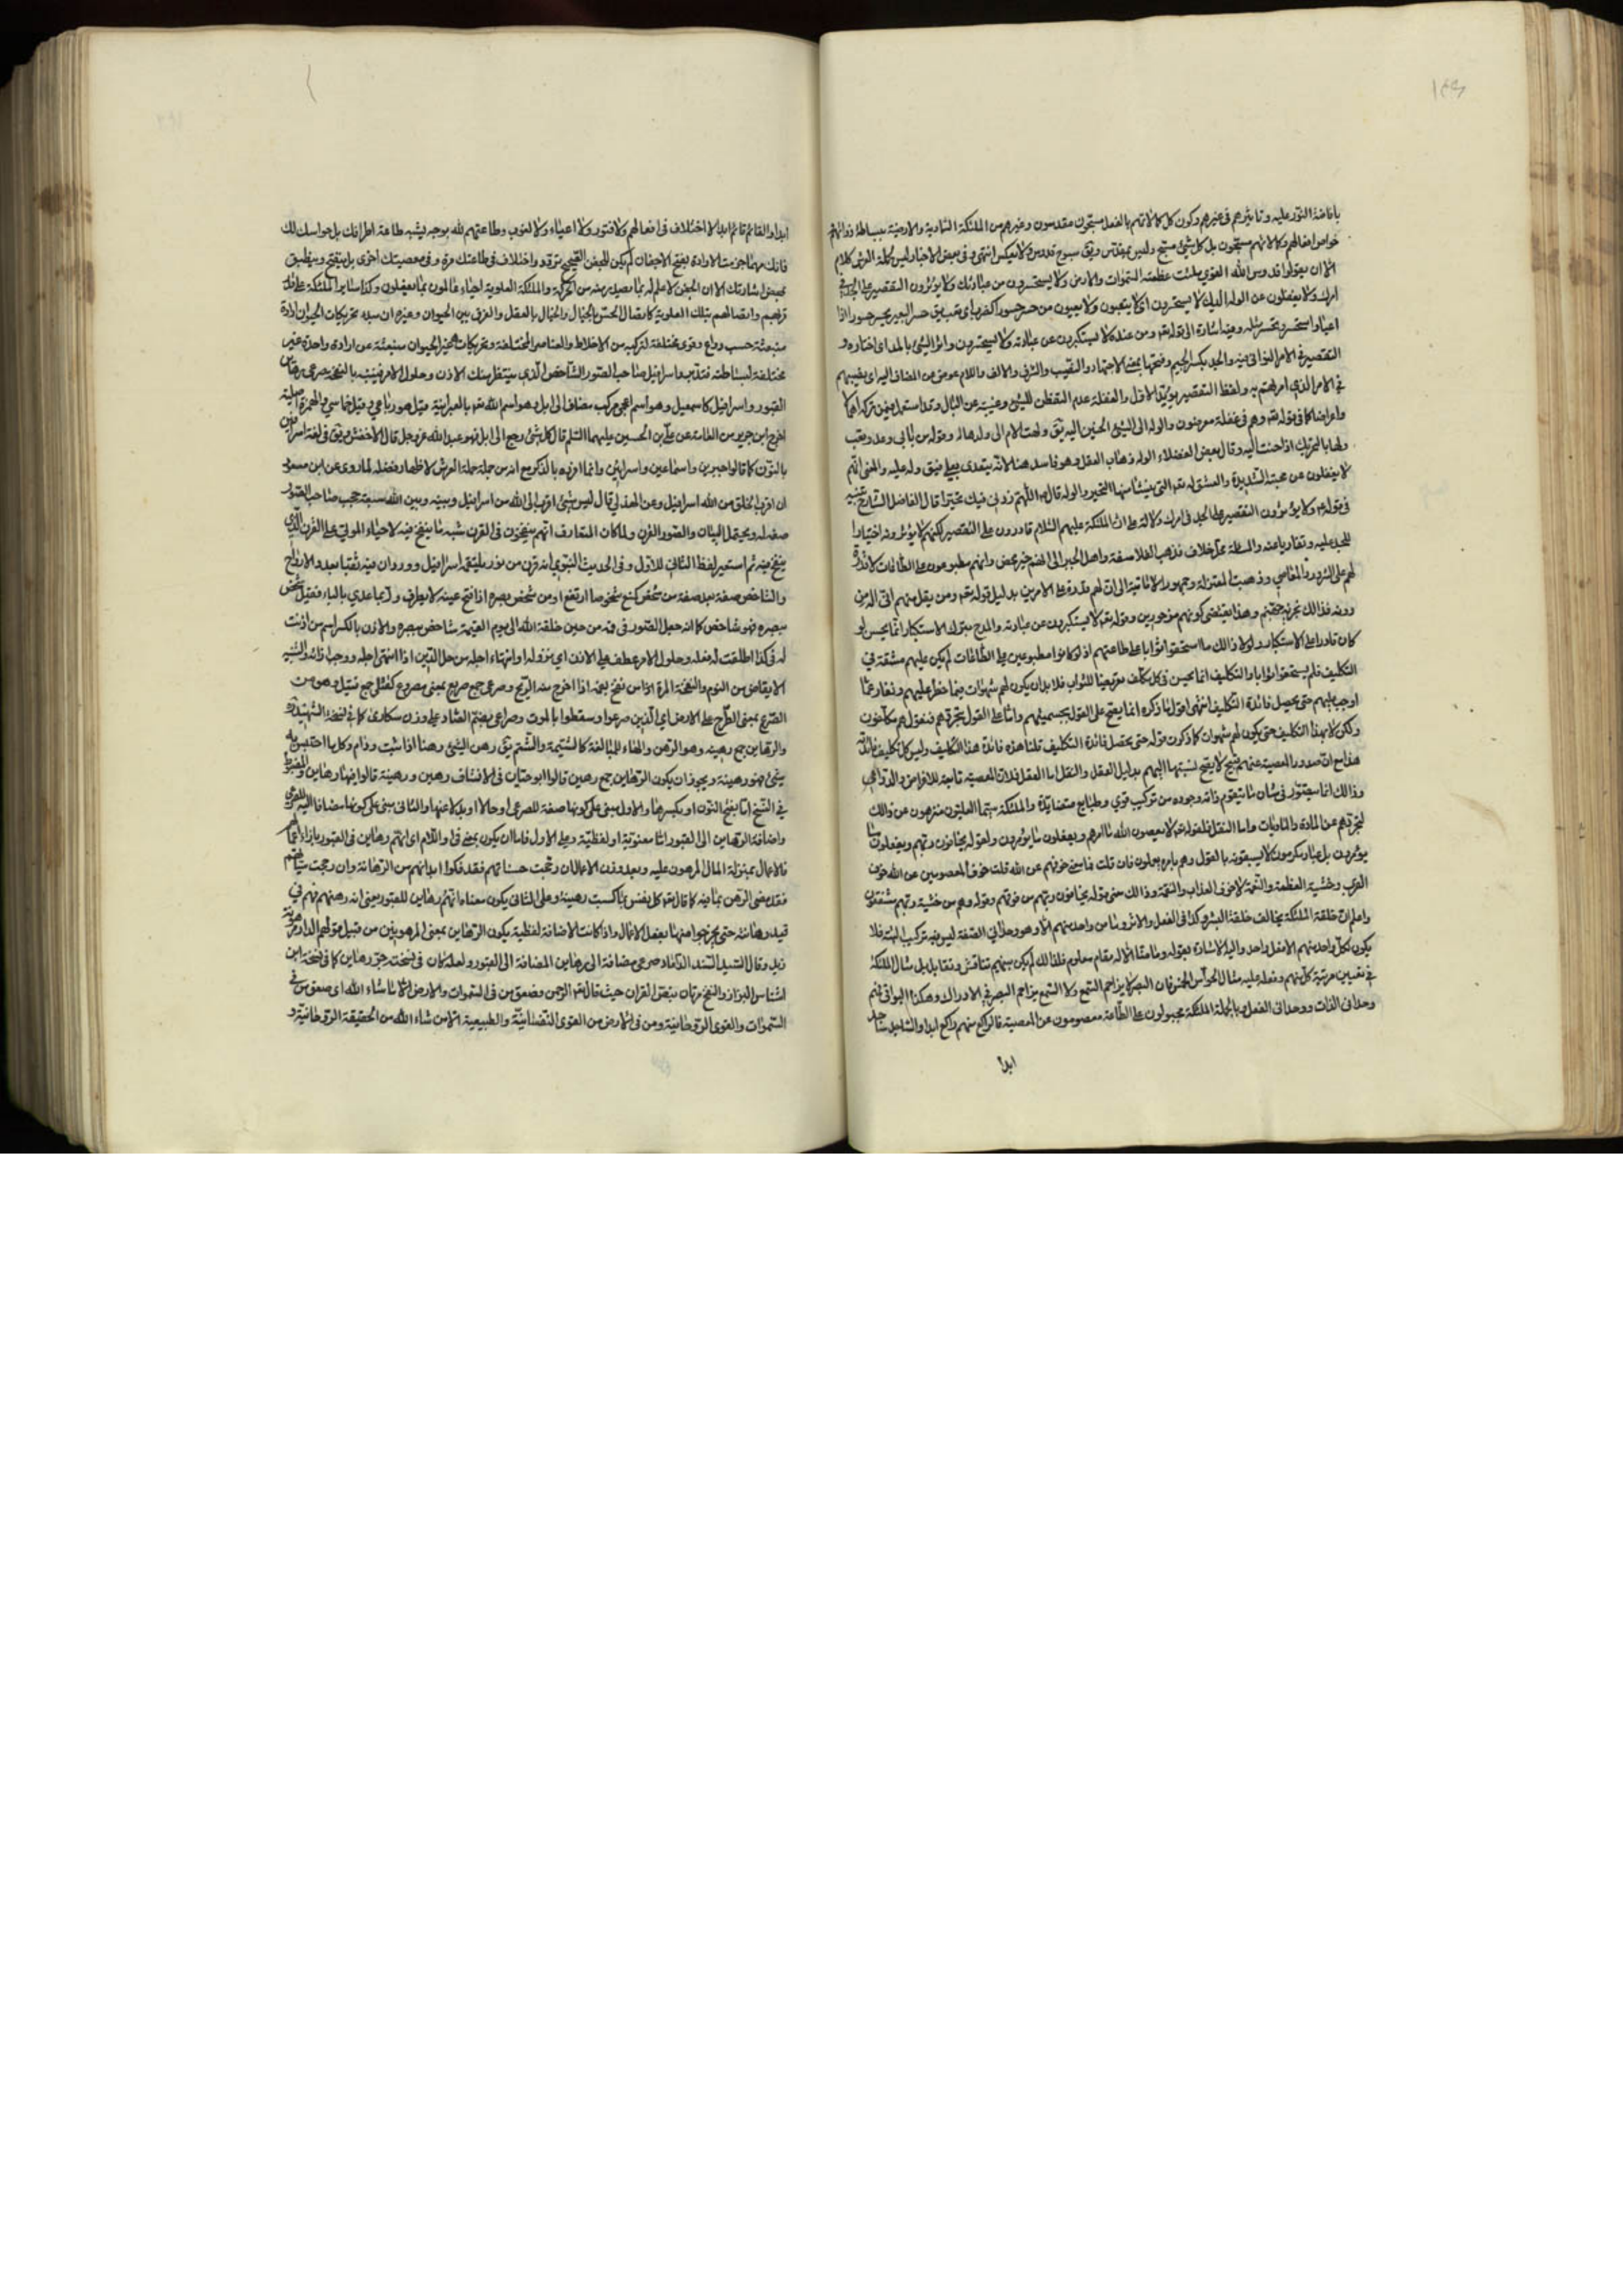 ١٤٣
بافاضة النور عليه وتاثيرهم في غيرهم وكون كل كمالاتهم بالفعل مسبحون مقدسون وغيرهم من الملئكة السماوية والارضية ببساطة ذواتهم
خواص افعالهم وكمالاتهم مسبحون بل كل شيء مسبح وليس بمقدس وفي سبوح قدوس ولا يعكس انتهى وفي بعض الاخبار ليس كلام
الا ان يقولوا قدوس الله القوي ملئت عظمته السموات والارض ولا يستحسرون من عبادتك ولا يؤثرون التقصير على الجد في
امرك ولا يغفلون عن الوله اليك لا يستحسرون اي لا يتعبون ولا يعيون من حسر حسورا كضرب اي تعب يق حسر البعير يحسر حسورا اذا
اعيا واستحسر وتحسر مثله وفيه اشارة الى قوله تعه ومن عنده لا يستكبرون عن عبادته ولا يستحسرون واثر الشيء بالمد اي اختاره و
التقصير في الامر التواني فيه والجد بكسر الجيم وفتحها بمعنى الاجتهاد والالف واللام عوض عن المضاف اليه اي بنصيبهم
في الامر الذي امرتهم به ولفظ التقصير يؤيد الاول والغفلة عدم التفطن للشيء وغيبته عن البال وقد استعمل فيمن تركه اهمالا
واعراضا كما في قوله تعه وهم في غفلة معرضون والوله الى الشيء الحنين اليه يق ولهت الام الى ولدها
ولها بالتحريك اذا حنت اليه وقال بعض الفضلاء الوله ذهاب العقل وهو فاسد هنا لانه يتعدى بعلى فيق وله عليه والمعنى انهم
لا يغفلون عن محبته الشديدة والعشق له تعه التي ينشأ منها التحير والوله قال اللهم زدني فيك تحيرا قال الفاضل الشارح
في قوله ولا يؤثرون التقصير على الجد في امرك دلالة على ان الملئكة عليهم السلام قادرون على التقصير لكنهم لا يؤثرونه اختيارا
للجد عليه وتفاديا عنه والمسئلة محل خلاف فذهب الفلاسفة واهل الجبر الى انهم خير محض وانهم مطبوعون على الطاعات لا قدرة
لهم على الشرور والمعاصي وذهبت المعتزلة وجمهور الامامية الى ان لهم قدرة على الامرين بدليل قوله تعه ومن يقل منهم اني اله من
دونه فذلك نجزيه جهنم وهذا يقتضي كونهم مزجورين وقوله تعه لا يستكبرون عن عبادته والمدح بترك الاستكبار انما يحسن لو
كان قادرا على الاستكبار ولولا ذلك ما استحقوا ثوابا على طاعتهم اذ لو كانوا مطبوعين على الطاعات لم يكن عليهم مشقة في
التكليف فلم يستحقوا ثوابا والتكليف انما يحسن في كل مكلف تعريضا للثواب فلا بد ان يكون لهم شهوات فيما حظر عليهم ونفار عما
اوجب عليهم حتى يحصل فائدة التكليف انتهى اقول ما ذكره انما يصح على القول بجسميتهم واما على القول بتجردهم فنقول هم مكلفون
ولكن لا بهذا التكليف حتى يكون لهم شهوات كما ذكرت قوله حتى يحصل فائدة التكليف قلنا هذه فائدة هذا التكليف وليس كل تكليف فائدته
هذا مع ان صدور المعصية عنهم قبيح لا يصح نسبتها اليهم بدليل العقل والنقل اما العقل فلان المعصية تابعة للاغراض والدواعي
وذلك انما يتصور في شان ما يتقوم ذاته وجوده من تركيب قوي وطبايع متضادة والملئكة سيما العليون منزهون عن ذلك
لتجردهم عن المادة والماديات واما النقل فلقوله تعه لا يعصون الله ما امرهم ويفعلون ما يؤمرون ولقوله يخافون ربهم ويفعلون ما
يؤمرون بل عباد مكرمون لا يسبقونه بالقول وهم بامره يعملون فان قلت فما معنى خوفهم عن الله قلت خوف المعصومين عن الله خوف
القرب وخشية العظمة والنعمة لا خوف العذاب والنقمة وذلك معنى قوله يخافون ربهم من فوقهم وقوله وهم من خشية ربهم مشفقون
واعلم ان خلقة الملئكة يخالف خلقة البشر وكذا في الفعل والاثر وما من واحد منهم الا وهو وحداني الصفة ليس فيه تركيب البتة فلا
يكون لكل واحد منهم الا فعل واحد واليه الاشارة بقوله وما منا الا له مقام معلوم فلذلك لم يكن بينهم تنافس وتقابل بل مثال الملئكة
في تعيين مرتبة كل منهم وفعله عليه مثال الحواس الخمس فان البصر لا يزاحم السمع ولا السمع يزاحم البصر في الادراك وهكذا البواقي فهم
وحداني الذات ووحداني الفعل وبالجملة الملئكة مجبولون على الطاعة معصومون عن المعصية فالراكع منهم راكع ابدا والساجد ساجد
ابدا
ابدا والقائم قائم ابدا لا اختلاف في افعالهم ولا فتور ولا اعياء ولا لغوب وطاعتهم لله بوجه يشبه طاعة اطرافك بل حواسك لك
فانك مهما جزمت الارادة بفتح الاجفان لم يكن للجفن الصحيح تردد واختلاف في طاعتك مرة وفي معصيتك اخرى بل ينفتح وينطبق
بمحض اشارتك الا ان الجفن لا علم له بما يصدر منه من الحركة والملئكة العلوية احياء عالمون بما يفعلون وكذا ساير الملئكة على قدر
قربهم واتصالهم بتلك العلوية كاتصال الحس بالخيال والخيال بالعقل والفرق بين الحيوان وغيره ان مبدء تحريكات الحيوان ارادة
منبعثة حسب دواع وقوى مختلفة لتركيبه من الاخلاط والعناصر المختلفة وتحريكات غير الحيوان منبعثة عن ارادة واحدة غير
مختلفة لبساطته فتدبر واسرافيل صاحب الصور الشاخص الذي ينتظر منك الاذن وحلول الامر فينبه بالنفخة صرعى رهاين
القبور واسرافيل كاسمعيل وهو اسم اعجمي مركب مضاف الى ايل وهو اسم الله تعه بالعبرانية وقيل هو رباعي وقيل خماسي والهمزة اصلية
اخرج ابن جرير من الثقات عن علي بن الحسين عليهما السلام قال كل شيء رجع الى ايل فهو عبد الله عز وجل قال الاخفش ويق في لغة اسرافين
بالنون كما قالوا جبرين واسماعين واسرائين وانما افرده بالذكر مع انه من جملة حملة العرش لاظهار فضله لما روى عن ابن مسعود
ان اقرب الخلق من الله اسرافيل وعن الهذلي قال ليس شيء اقرب الى الله من اسرافيل وبينه وبين الله سبعة حجب صاحب الصور
صفة له ويحتمل البيان والصور القرن ولما كان المتعارف انهم ينفخون في القرن شبه ما ينفخ فيه لاحياء الموتى على القرن الذي
ينفخ فيه ثم استعير لفظ الثاني للاول وفي الحديث النبوي انه قرن من نور يلتقمه اسرافيل وورد ان فيه ثقبا بعدد الارواح
والشاخص صفة بعد صفة من شخص كمنع شخوصا ارتفع او من شخص بصره اذا فتح عينه لا يطرف وربما عدي بالباء فقيل شخص
ببصره فهو شاخص كما انه جعل الصور في فمه من حين خلقه الله الى يوم القيمة شاخص بصره والاذن بالكسر اسم من اذنت
له في كذا اطلقت له فعله وحلول الامر عطف على الاذن اي نزوله او انتهاء اجله من حل الدين اذا انتهى اجله ووجب اداؤه والتنبيه
الايقاض من النوم والنفخة المرة الواحدة من نفخ بفمه اذا اخرج منه الريح وصرعى جمع صريع بمعنى مصروع كقتلى جمع قتيل وهو من
الصرع بمعنى الطرح على الارض اي الذين صرعوا وسقطوا بالموت وصراعى بضم الصاد على وزن سكارى كما في نسخة الشهيد
والرهاين جمع رهينة وهو الرهن والهاء للمبالغة كالشتيمة والشتم يق رهن الشيء رهنا اذا ثبت ودام وكل ما احتبس به
شيء فهو رهينة ويجوز ان يكون الرهاين جمع رهين قال ابو حيان في الارتشاف رهين ورهينة قالوا فيها رهاين والمضبوط
في النسخ اما بفتح النون او بكسرها والاول مبني على كونها صفة للصرعى او حالا او بدلا عنها والثاني مبني على كونها مضافا اليه للصرعى
واضافة الرهاين الى القبور اما معنوية او لفظية وعلى الاول فاما ان يكون بمعنى في او اللام اي انهم رهاين في القبور بازاء اعمالهم
فالاعمال بمنزلة المال المرهون عليه وبعد وزن الاعمال ان رجحت حسناتهم فقد فكوا ابدانهم من الرهانة وان رجحت سيئاتهم
فقد مضى الرهن بما فيه كما قال تعه كل نفس بما كسبت رهينة وعلى الثاني يكون معناه انهم رهاين للقبور بمعنى انه رهنهم فهم في
قيد رهانته حتى يخرجوا منها بفعل الاعمال واذا كانت الاضافة لفظية يكون الرهاين بمعنى المرهونين من قبيل قولهم الدار مرهونة
زيد وقال السيد السند الداماد صرعى مضافة الى رهاين المضافة الى القبور ولعله كان في نسخته جر رهاين كما في نسخة ابن
اشناس البزاز والنفخ مرتان بنص القران حيث قال تعه فصعق من في السموات والارض الا ما شاء الله اي صعق من في
السموات والقوى الروحانية ومن في الارض من القوى النفسانية والطبيعية الا من شاء الله من الحقيقة الروحانية و